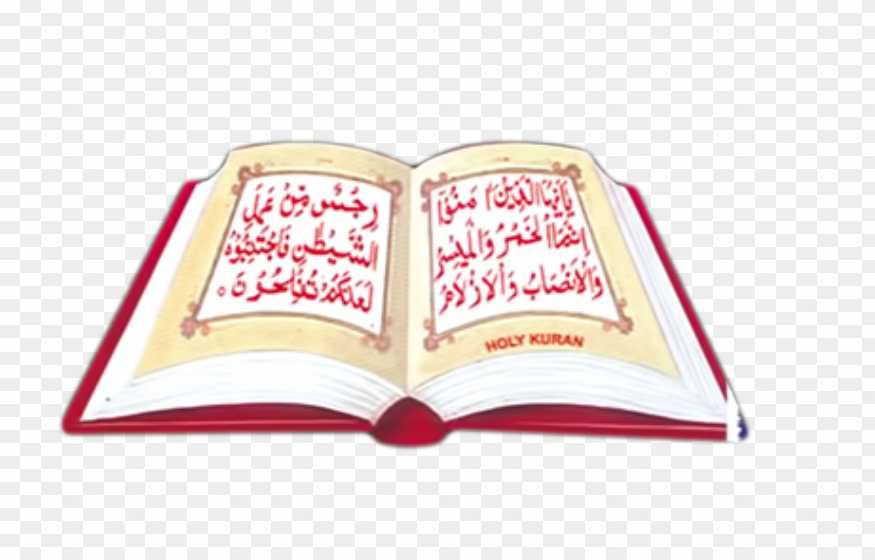 يَٰۤاَيُّهَا الَّذِيْنَ اٰمَنُوْۤا
اِنَّمَا الْخَمْرُ وَالْمَيْسِرُ
وَالْاَنْصَابُ وَالْاَزْلَامُ
رِجْسٌ مِّنْ عَمَلِ
الشَّيْطٰنِ فَاجْتَنِبُوْهُ
لَعَلَّكُمْ تُفْلِحُوْنَ ○
HOLY KURAN